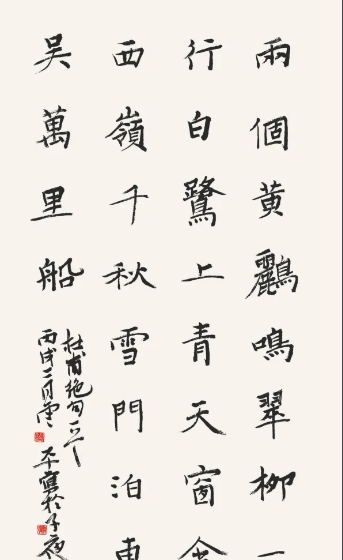 兩個黃鸝鳴翠柳一
行白鷺上青天窗含
西嶺千秋雪門泊東
吳萬里船
杜甫絕句一首
丙戌二月
平寫於子夜